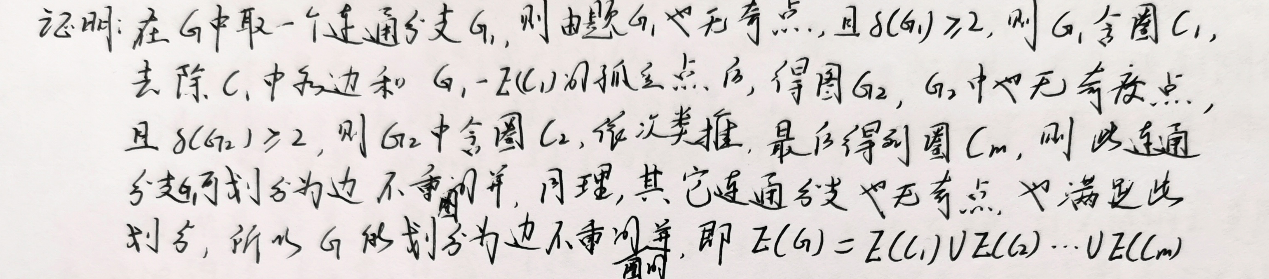 证明：在G中取一个连通分支G₁，则由题G₁也无奇点，且δ(G₁)≥2，则G₁含圈C₁，
去除C₁中各边和G₁-E(C₁)的孤立点后，得图G₂，G₂中也无奇度点，
且δ(G₂)≥2，则G₂中含圈C₂，依次类推，最后得到圈Cm，则此连通
分支G₁可划分为边不重圈的并，同理，其它连通分支也无奇点，也满足此
划分，所以G能划分为边不重圈的并，即E(G)=E(C₁)∪E(C₂)⋯∪E(Cm)